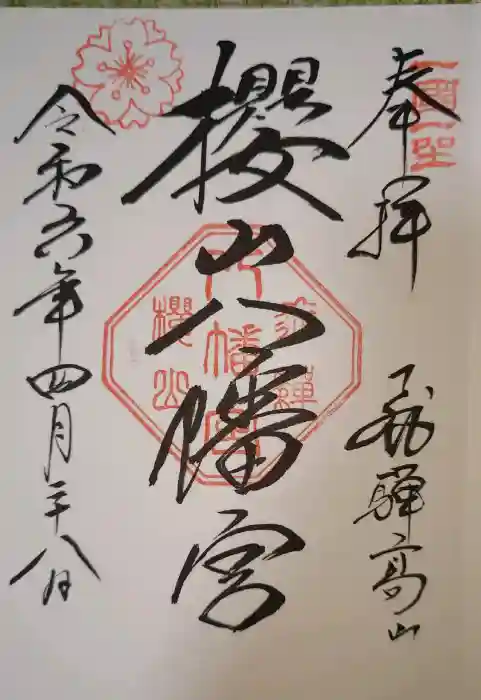 奉拝
飛騨高山
櫻山八幡宮
令和六年四月二十八日
一國一社
飛騨
八幡宮
櫻山